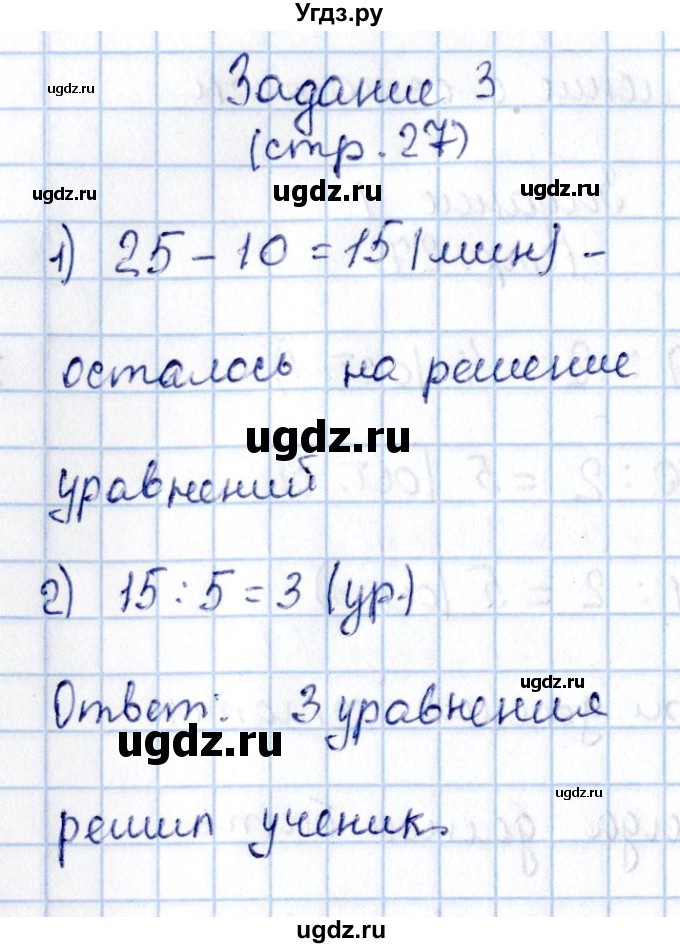 Угдз.ру
ugdz.ru
Задание 3
(стр. 27)
ugdz.ru ugdz.ru ugdz.ru
1) 25 - 10 = 15 (мин) -
осталось на решение
ugdz.ru
уравнений
2) 15 : 5 = 3 (ур.)
ugdz.ru
Ответ: 3 уравнения
ugdz.ru
ugdz.ru
решил ученик.
ugdz.ru